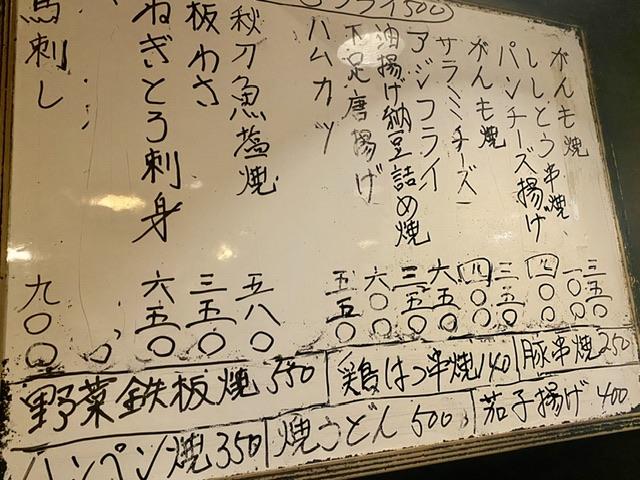 フライ500
がんも焼 三五〇
ししとう串焼 一〇〇
パンチーズ揚げ 四〇〇
がんも焼 三五〇
サラミチーズ 四〇〇
アジフライ 六五〇
油揚げ納豆詰め焼 三五〇
下足唐揚げ 六〇〇
ハムカツ 五五〇
秋刀魚塩焼 五八〇
板わさ 三五〇
ねぎとろ刺身 六五〇
馬刺し 九〇〇
野菜鉄板焼 550
鶏はつ串焼 140
豚串焼 250
ハンペン焼 350
焼うどん 500
茄子揚げ 400